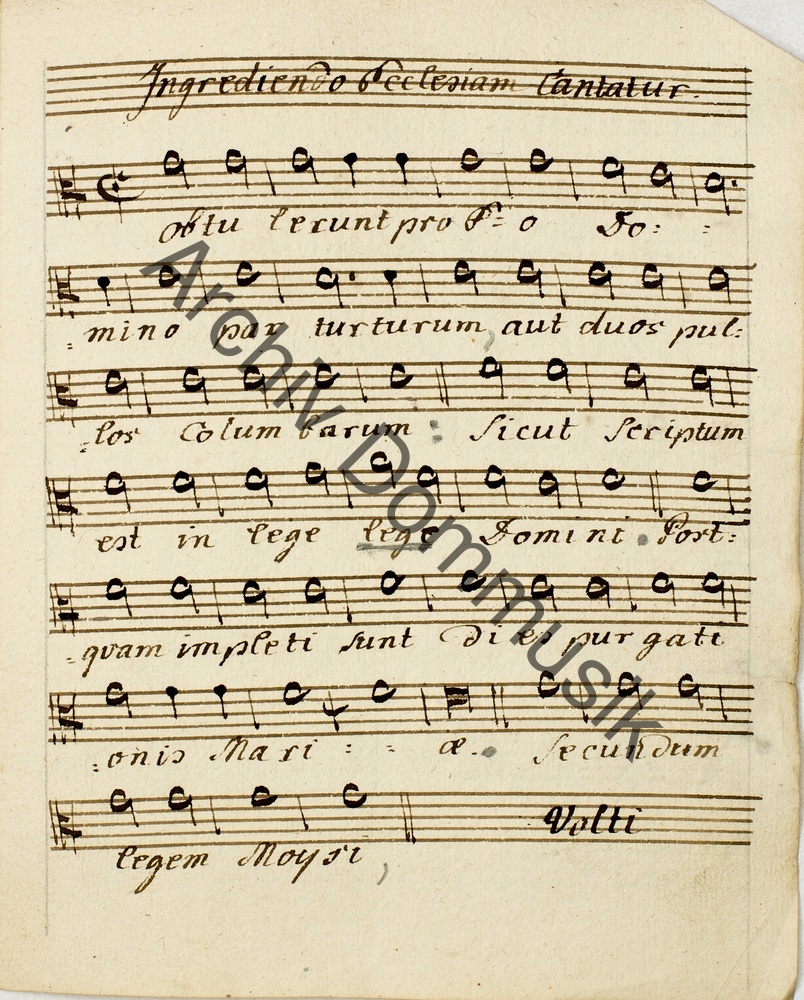 Ingrediendo Ecclesiam Cantatur.
obtu lerunt pro = o Do: =
= mino par turturum, aut duos pul:
= los Colum barum : sicut scriptum
est in lege lege Domini . Post:
= quam impleti sunt di es pur gati
: onis Mari : = æ. secundum
legem Moysi, Volti
Archiv Dommusik